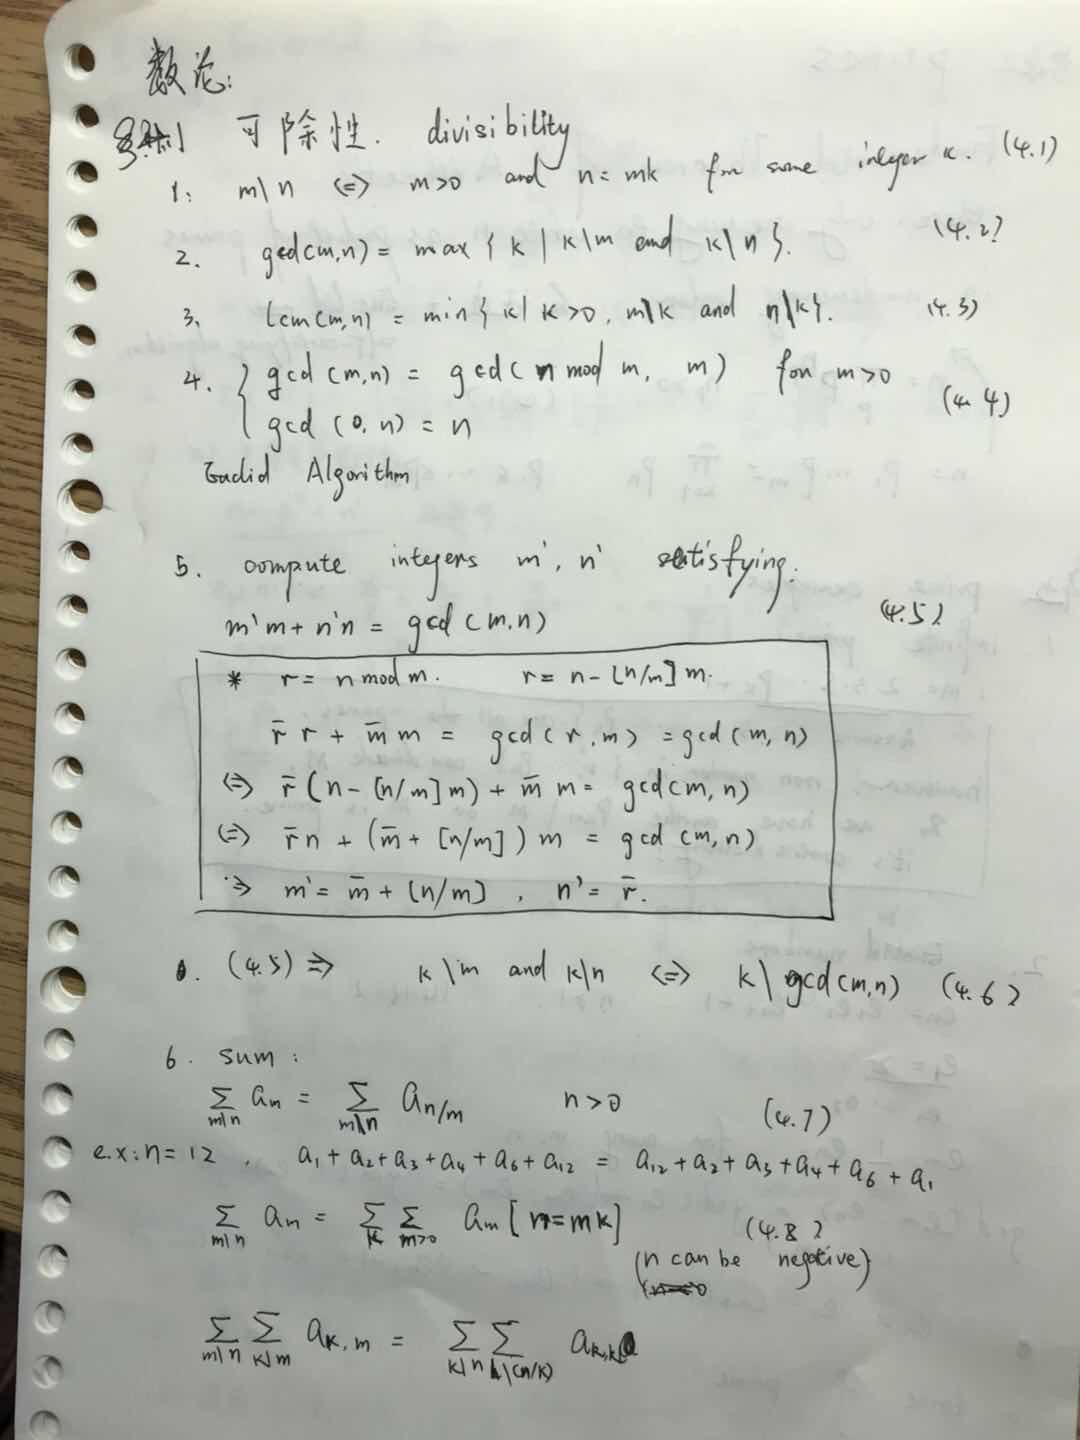 数论:
可除性. divisibility
1. m\n <=> m>0 and n = mk for some integer k. (4.1)
2. gcd(m,n) = max { k | k\m and k\n }. (4.2)
3. lcm(m,n) = min { k | k>0, m\k and n\k}. (4.3)
4. { gcd (m,n) = gcd( n mod m, m) for m>0
gcd (0, n) = n (4.4)
Euclid Algorithm
5. compute integers m', n' satisfying.
m'm + n'n = gcd (m,n) (4.5)
* r = n mod m. r = n - ⌊n/m⌋ m.
r̄ r + m̄ m = gcd( r, m) = gcd(m, n)
<=> r̄ (n - ⌊n/m⌋ m) + m̄ m = gcd(m, n)
<=> r̄ n + (m̄ + ⌊n/m⌋) m = gcd (m, n)
=> m' = m̄ + ⌊n/m⌋ , n' = r̄.
(4.5) => k\m and k\n <=> k\gcd(m,n) (4.6)
6. sum:
∑_{m\n} a_m = ∑_{m\n} a_{n/m} n>0 (4.7)
e.x: n = 12, a₁ + a₂ + a₃ + a₄ + a₆ + a₁₂ = a₁₂ + a₂ + a₃ + a₄ + a₆ + a₁
∑_{m\n} a_n = ∑_k ∑_{m>0} a_m [n=mk] (4.8)
(n can be negative)
∑_{m\n} ∑_{k\m} a_{k,m} = ∑_{k\n} ∑_{\(n/k)} a_{k,k}